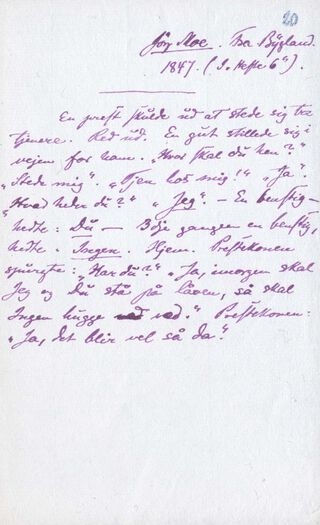 20
Jörg Moe. Fra Bygland.
1847. (I. Hefte 6").
En prest skulde ud at stede sig tre
tjenere. Red ud. En gut stillede sig i
vejen for ham. „Hvor skal du hen?"
„Stede mig". „Tjen hos mig!" „Ja".
„Hvad heder du?" „Jeg". – En
hedte: Du – gangen en
hedte. Ingen. Hjem. Prestekonen
spurgte: „Har du?" „Ja, imorgen skal
Jeg og Du stå på låven, så skal
Ingen hugge ved." Prestekonen:
„Ja, det blir vel så da".